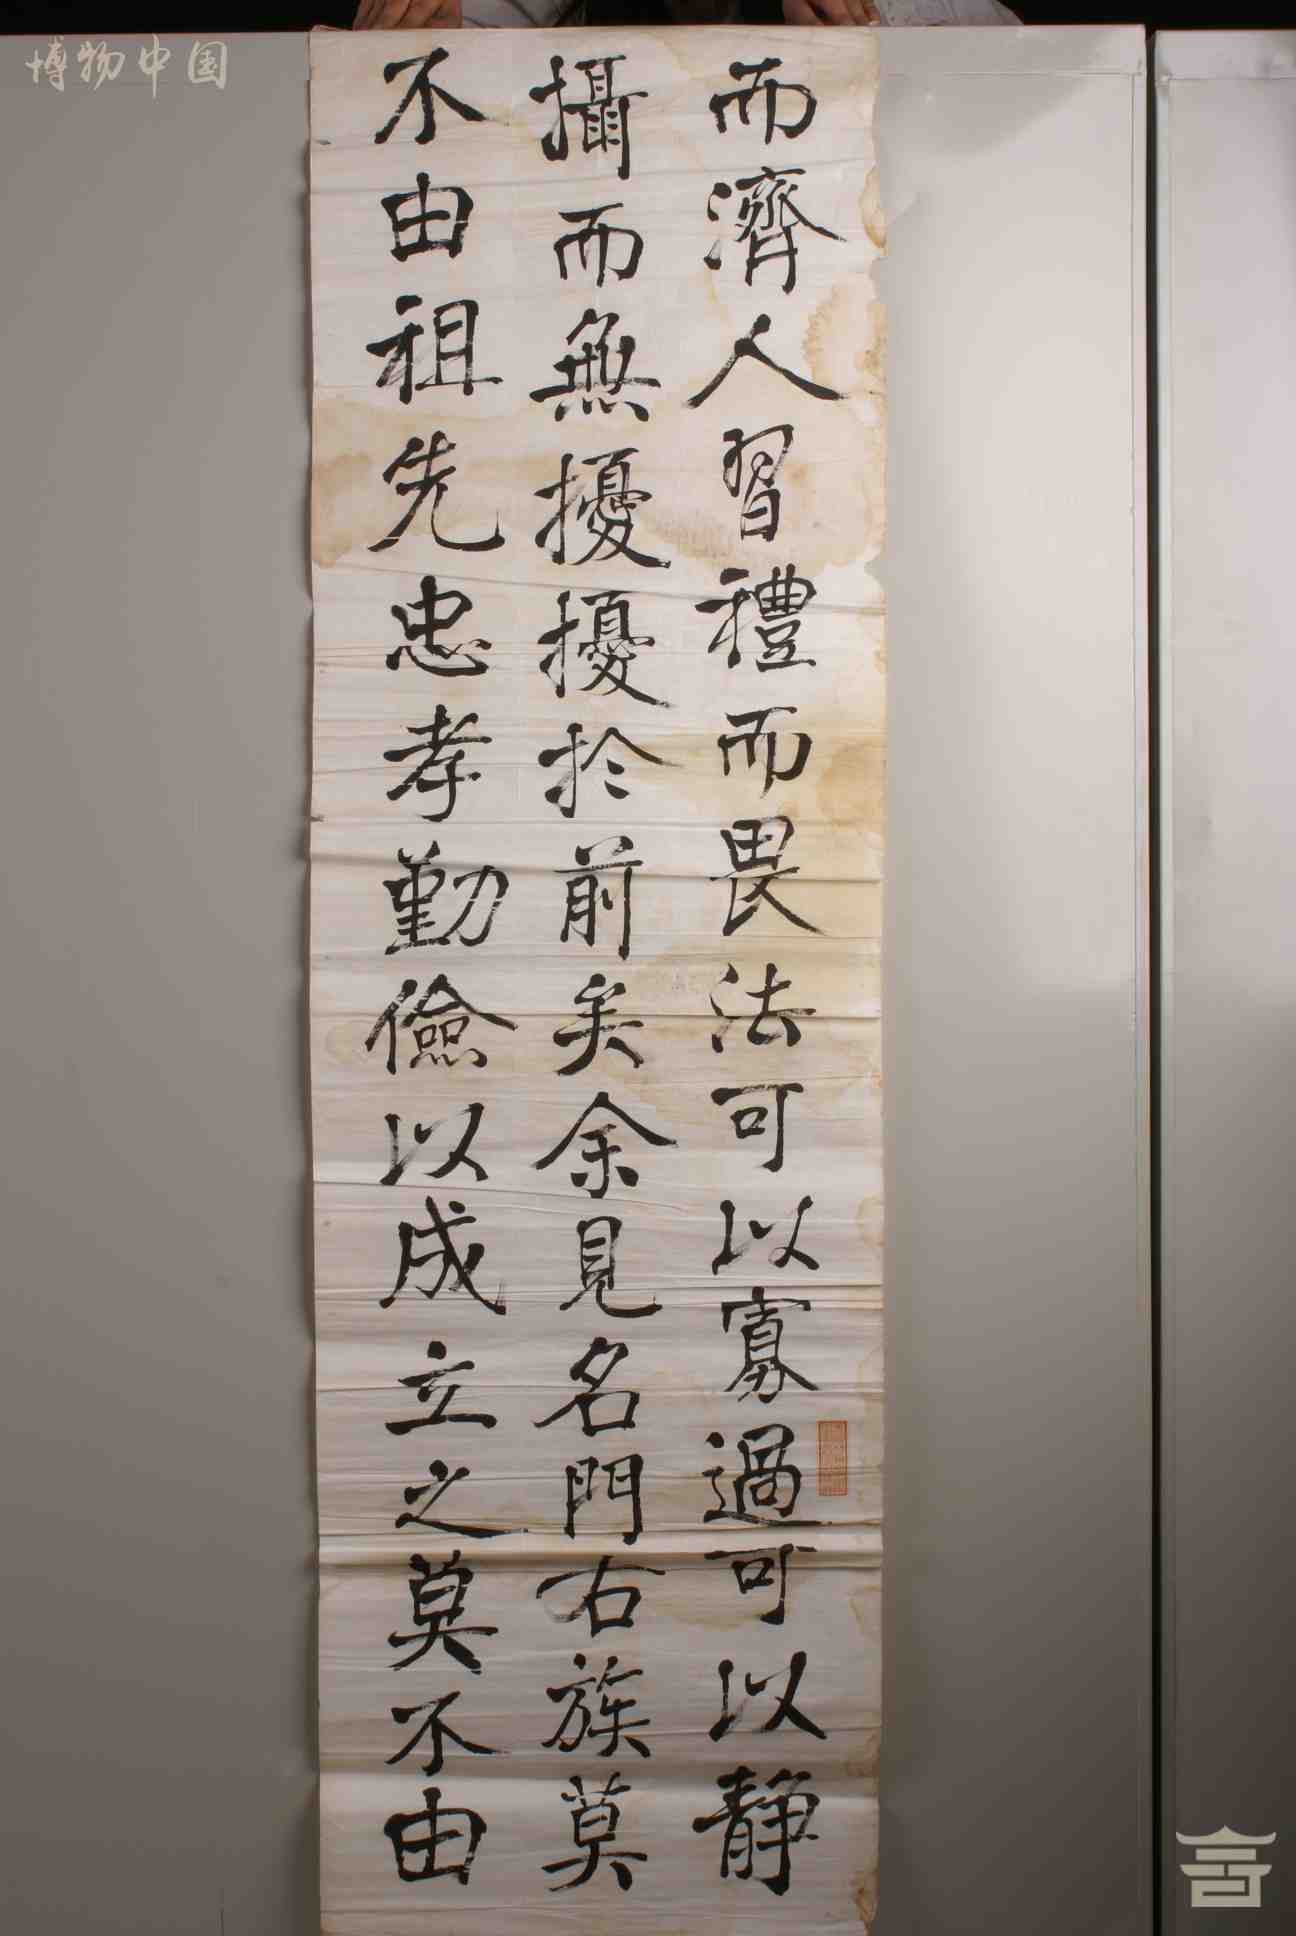 而濟人習禮而畏法可以寡過可以靜
攝而無擾擾於前矣余見名門右族莫
不由祖先忠孝勤儉以成立之莫不由
博物中国